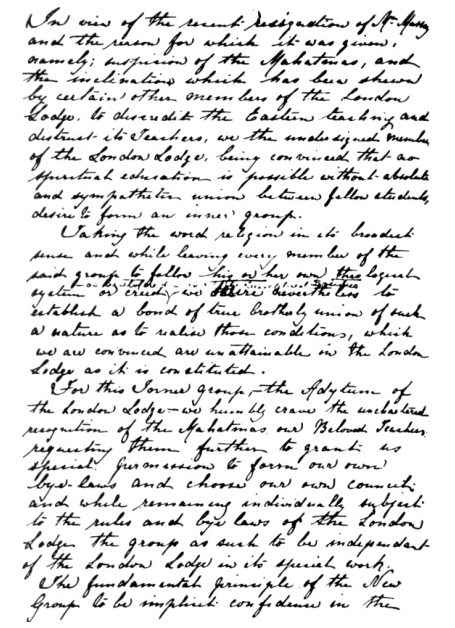 In view of the recent resignation of Mr Massey
and the reason for which it was given,
namely; suspicion of the Mahatmas, and
the inclination which has been shewn
by certain other members of the London
Lodge, to discredit the Eastern teaching and
distrust its Teachers, we the undersigned member
of the London Lodge, being convinced that no
spiritual education is possible without absolute
and sympathetic union between fellow students,
desire to form an inner group.
Taking the word religion in its broadest
sense and while leaving every member of the
said group to follow his or her own
system or creed, we desire nevertheless to
establish a bond of true brotherly union of such
a nature as to realise those conditions, which
we are convinced are unattainable in the London
Lodge as it is constituted.
For this Inner group, - the Adytum of
the London Lodge - we humbly crave the
recognition of the Mahatmas our Beloved Teachers
requesting them further to grant us
special permission to form our own
bye-laws and choose our own council;
and while remaining individually subject
to the rules and bye laws of the London
Lodge the group as such to be independant
of the London Lodge in its special work.
The fundamental principle of the New
Group to be implicit confidence in the